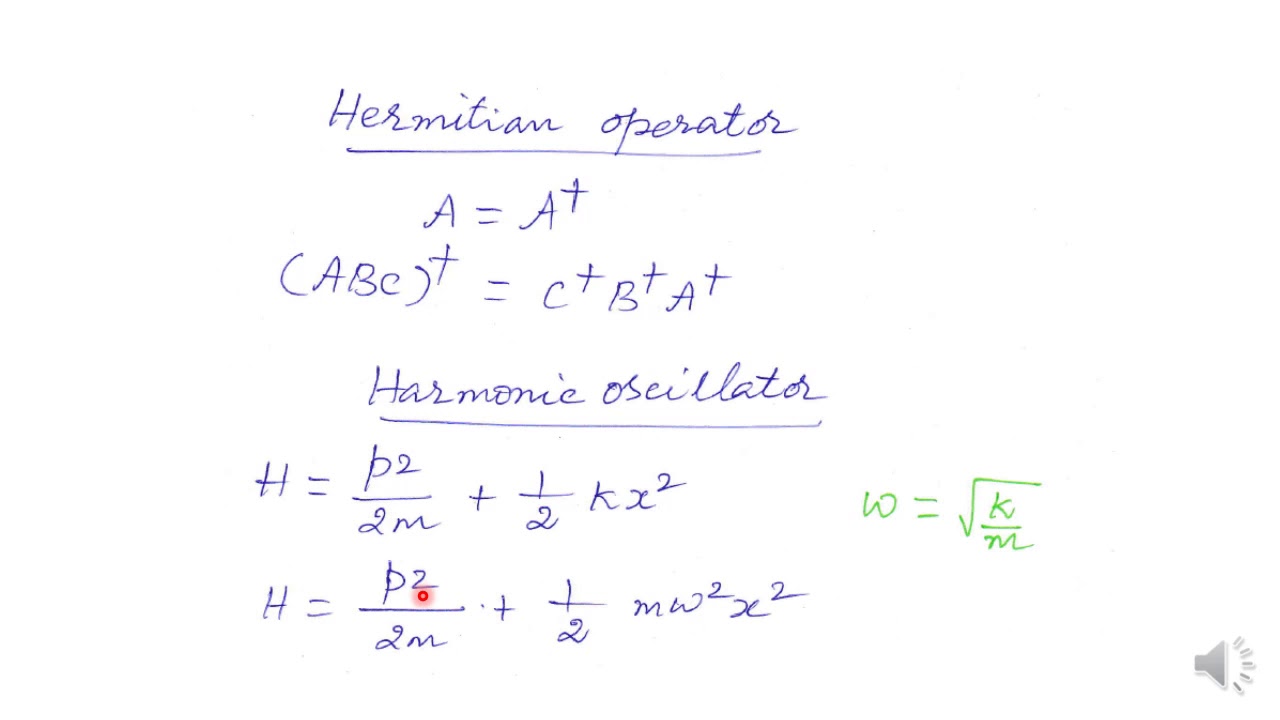 Hermitian operator
A = A†
(ABC)† = C†B†A†
Harmonic oscillator
H = p2/2m + 1/2 kx²
ω = √(k/m)
H = p2/2m + 1/2 mω²x²